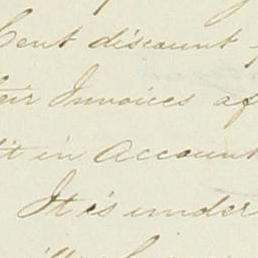 Cent discount
eir Invoices af
it in Account
It is under